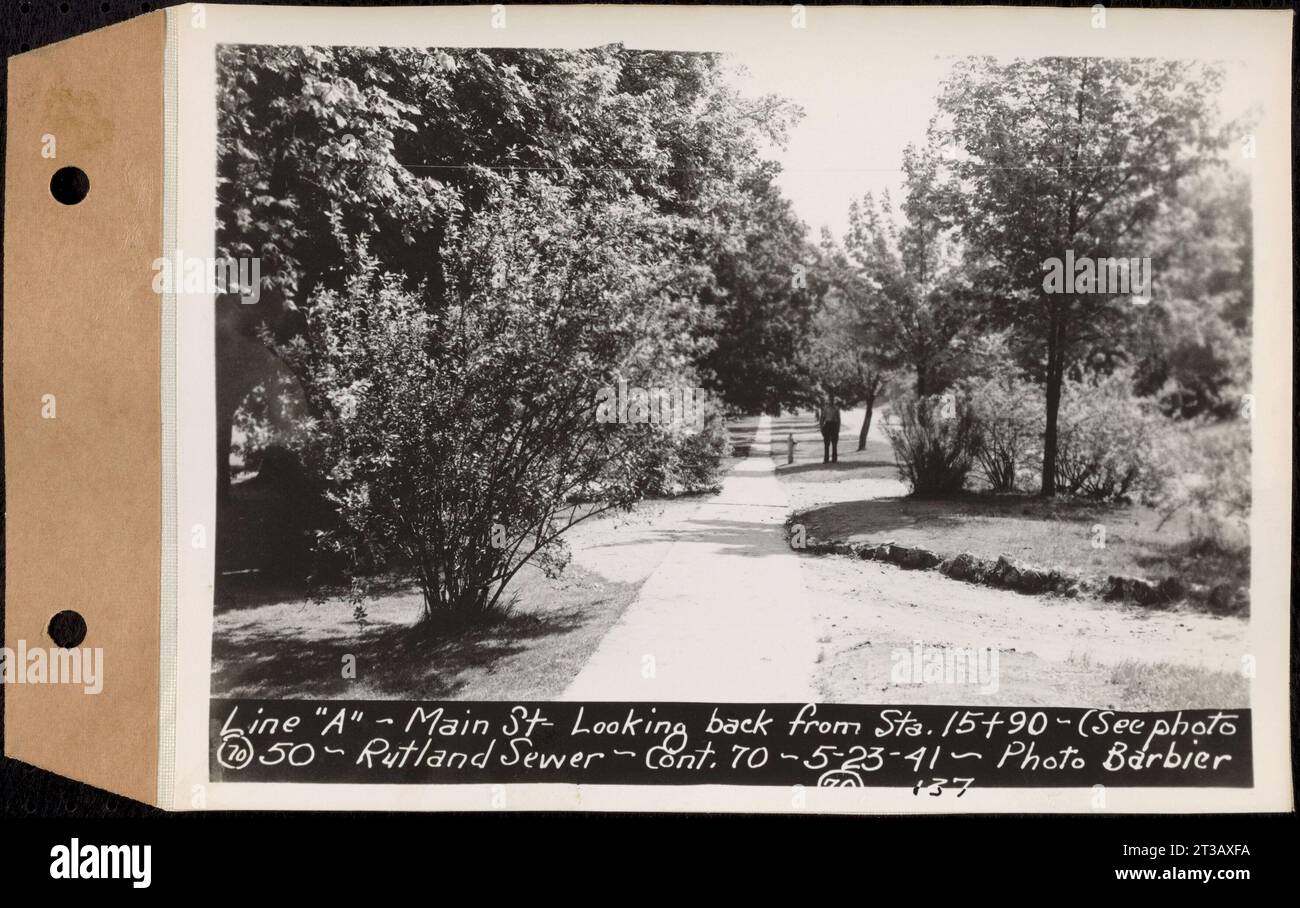 Line "A" - Main St - Looking back from Sta. 15+90 - (See photo
(70) 50 - Rutland Sewer - Cont. 70 - 5-23-41 - Photo Barbier
(70) 137
alamy
alamy
Image ID: 2T3AXFA
www.alamy.com